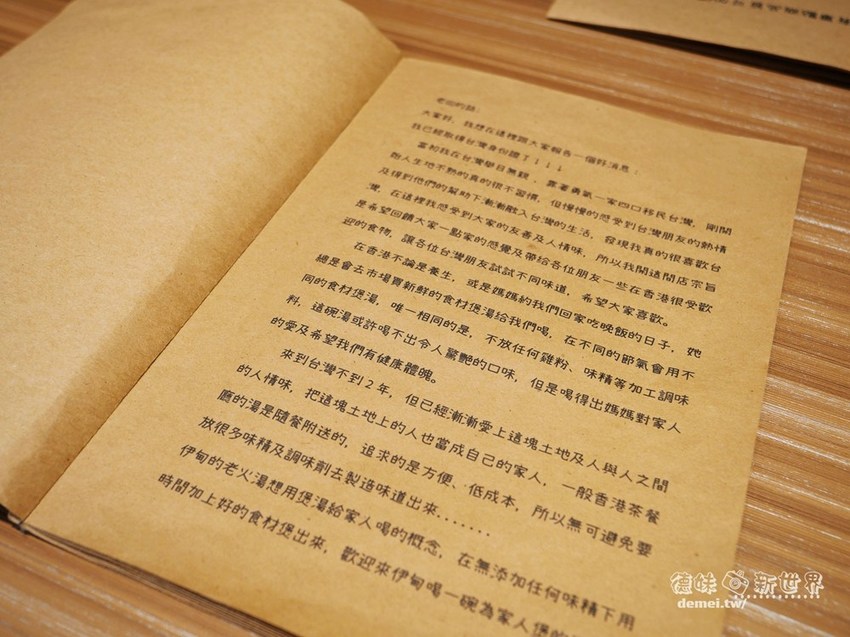 老闆的話：
大家好，我想在這裡跟大家報告一個好消息：
我已經取得台灣身份證了！！！！
當初我在台灣舉目無親，靠著勇氣一家四口移民台灣，剛開
始人生地不熟的真的很不習慣，但慢慢的感受到台灣朋友的熱情
及得到他們的幫助下漸漸融入台灣的生活，發現我真的很喜歡台
灣，在這裡我感受到大家的友善及人情味，所以我開這間店宗旨
是希望回饋大家一點家的感覺及帶給各位朋友一些在香港很受歡
迎的食物，讓各位台灣朋友試試不同味道，希望大家喜歡。
在香港不論是養生，或是媽媽約我們回家吃晚飯的日子，她
總是會去市場買新鮮的食材煲湯給我們喝，在不同的節氣會用不
同的食材煲湯，唯一相同的是，不放任何雞粉、味精等加工調味
料，這碗湯或許喝不出令人驚艷的口味，但是喝得出媽媽對家人
的愛及希望我們有健康體魄。
來到台灣不到2年，但已經漸漸愛上這塊土地及人與人之間
的人情味，把這塊土地上的人也當成自己的家人，一般香港茶餐
廳的湯是隨餐附送的，追求的是方便、低成本，所以無可避免要
放很多味精及調味劑去製造味道出來.......
伊甸的老火湯想用煲湯給家人喝的概念，在無添加任何味精下用
時間加上好的食材煲出來，歡迎來伊甸喝一碗為家人煲的
德味 新世界
demei.tw/